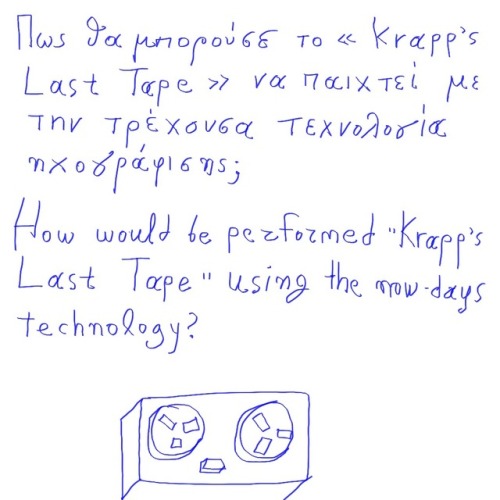 Πως θα μπορούσε το « Krapp's
Last Tape » να παιχτεί με
την τρέχουσα τεχνολογία
ηχογράφισης;
How would be performed "Krapp's
Last Tape" using the now-days
technology?